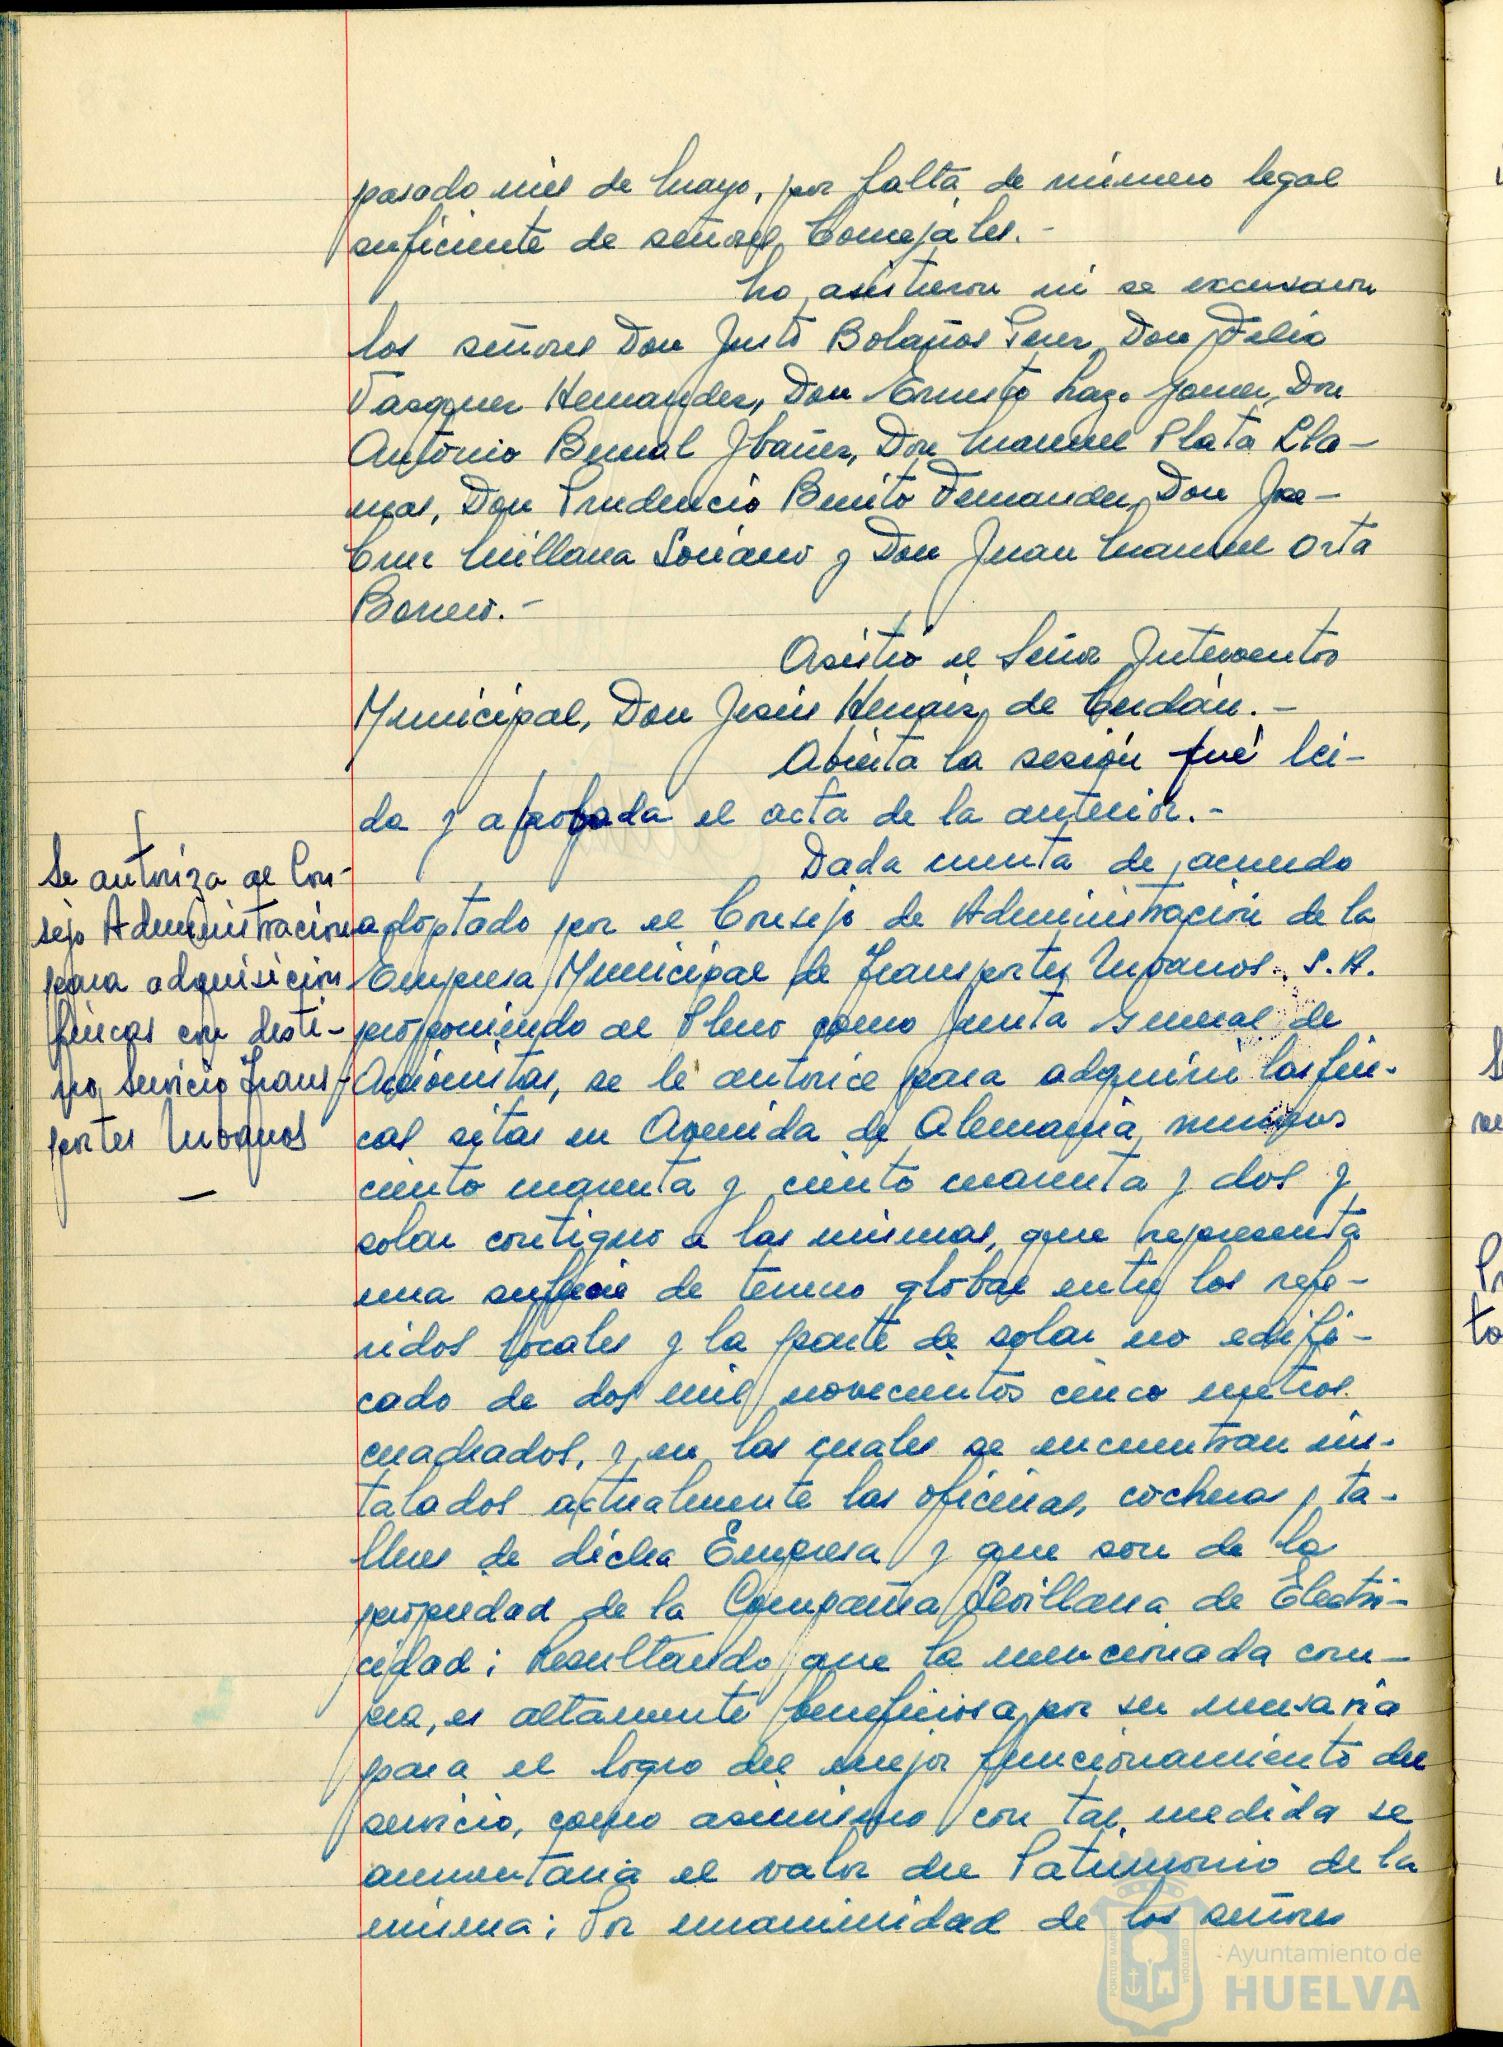 pasado mes de Mayo, por falta de número legal
suficiente de señores Concejales.-
No asistieron ni se excusaron
los señores Don Justo Bolaños Perez, Don Felix
Vazquez Hernandez, Don Ernesto Lazo Gomez, Don
Antonio Bernal Ibañez, Don Manuel Plata Lla-
mas, Don Prudencio Benito Fernandez, Don Jose
Cruz Millana Soriano y Don Juan Manuel Orta
Borrero.-
Asistió el Señor Interventor
Municipal, Don Jesús Henaiz de Cerdán.-
Abierta la sesión fué lei-
da y aprobada el acta de la anterior.-
Se autoriza al Con-
sejo Administracion
para adquisicion
fincas con desti-
no Servicio Trans-
portes Urbanos
Dada cuenta de acuerdo
adoptado por el Consejo de Administración de la
Empresa Municipal de Transportes Urbanos. S.A.
proponiendo al Pleno como Junta General de
Accionistas, se le autorice para adquirir las fin-
cas sitas en Avenida de Alemania, numeros
ciento cuarenta y ciento cuarenta y dos y
solar contiguo a las mismas, que representa
una de terreno global entre los refe-
ridos locales y la parte de solar no edifi-
cado de dos mil novecientos cinco metros
cuadrados, y en los cuales se encuentran ins-
talados actualmente las oficinas, cocheras y ta-
lleres de dicha Empresa y que son de la
propiedad de la Compañia Sevillana de Electri-
cidad; Resultando que la mencionada com-
pra, es altamente beneficiosa por ser necesaria
para el logro del mejor funcionamiento del
servicio, como asimismo con tal medida se
aumentaria el valor del Patrimonio de la
misma; Por unanimidad de los señores
Ayuntamiento de
HUELVA